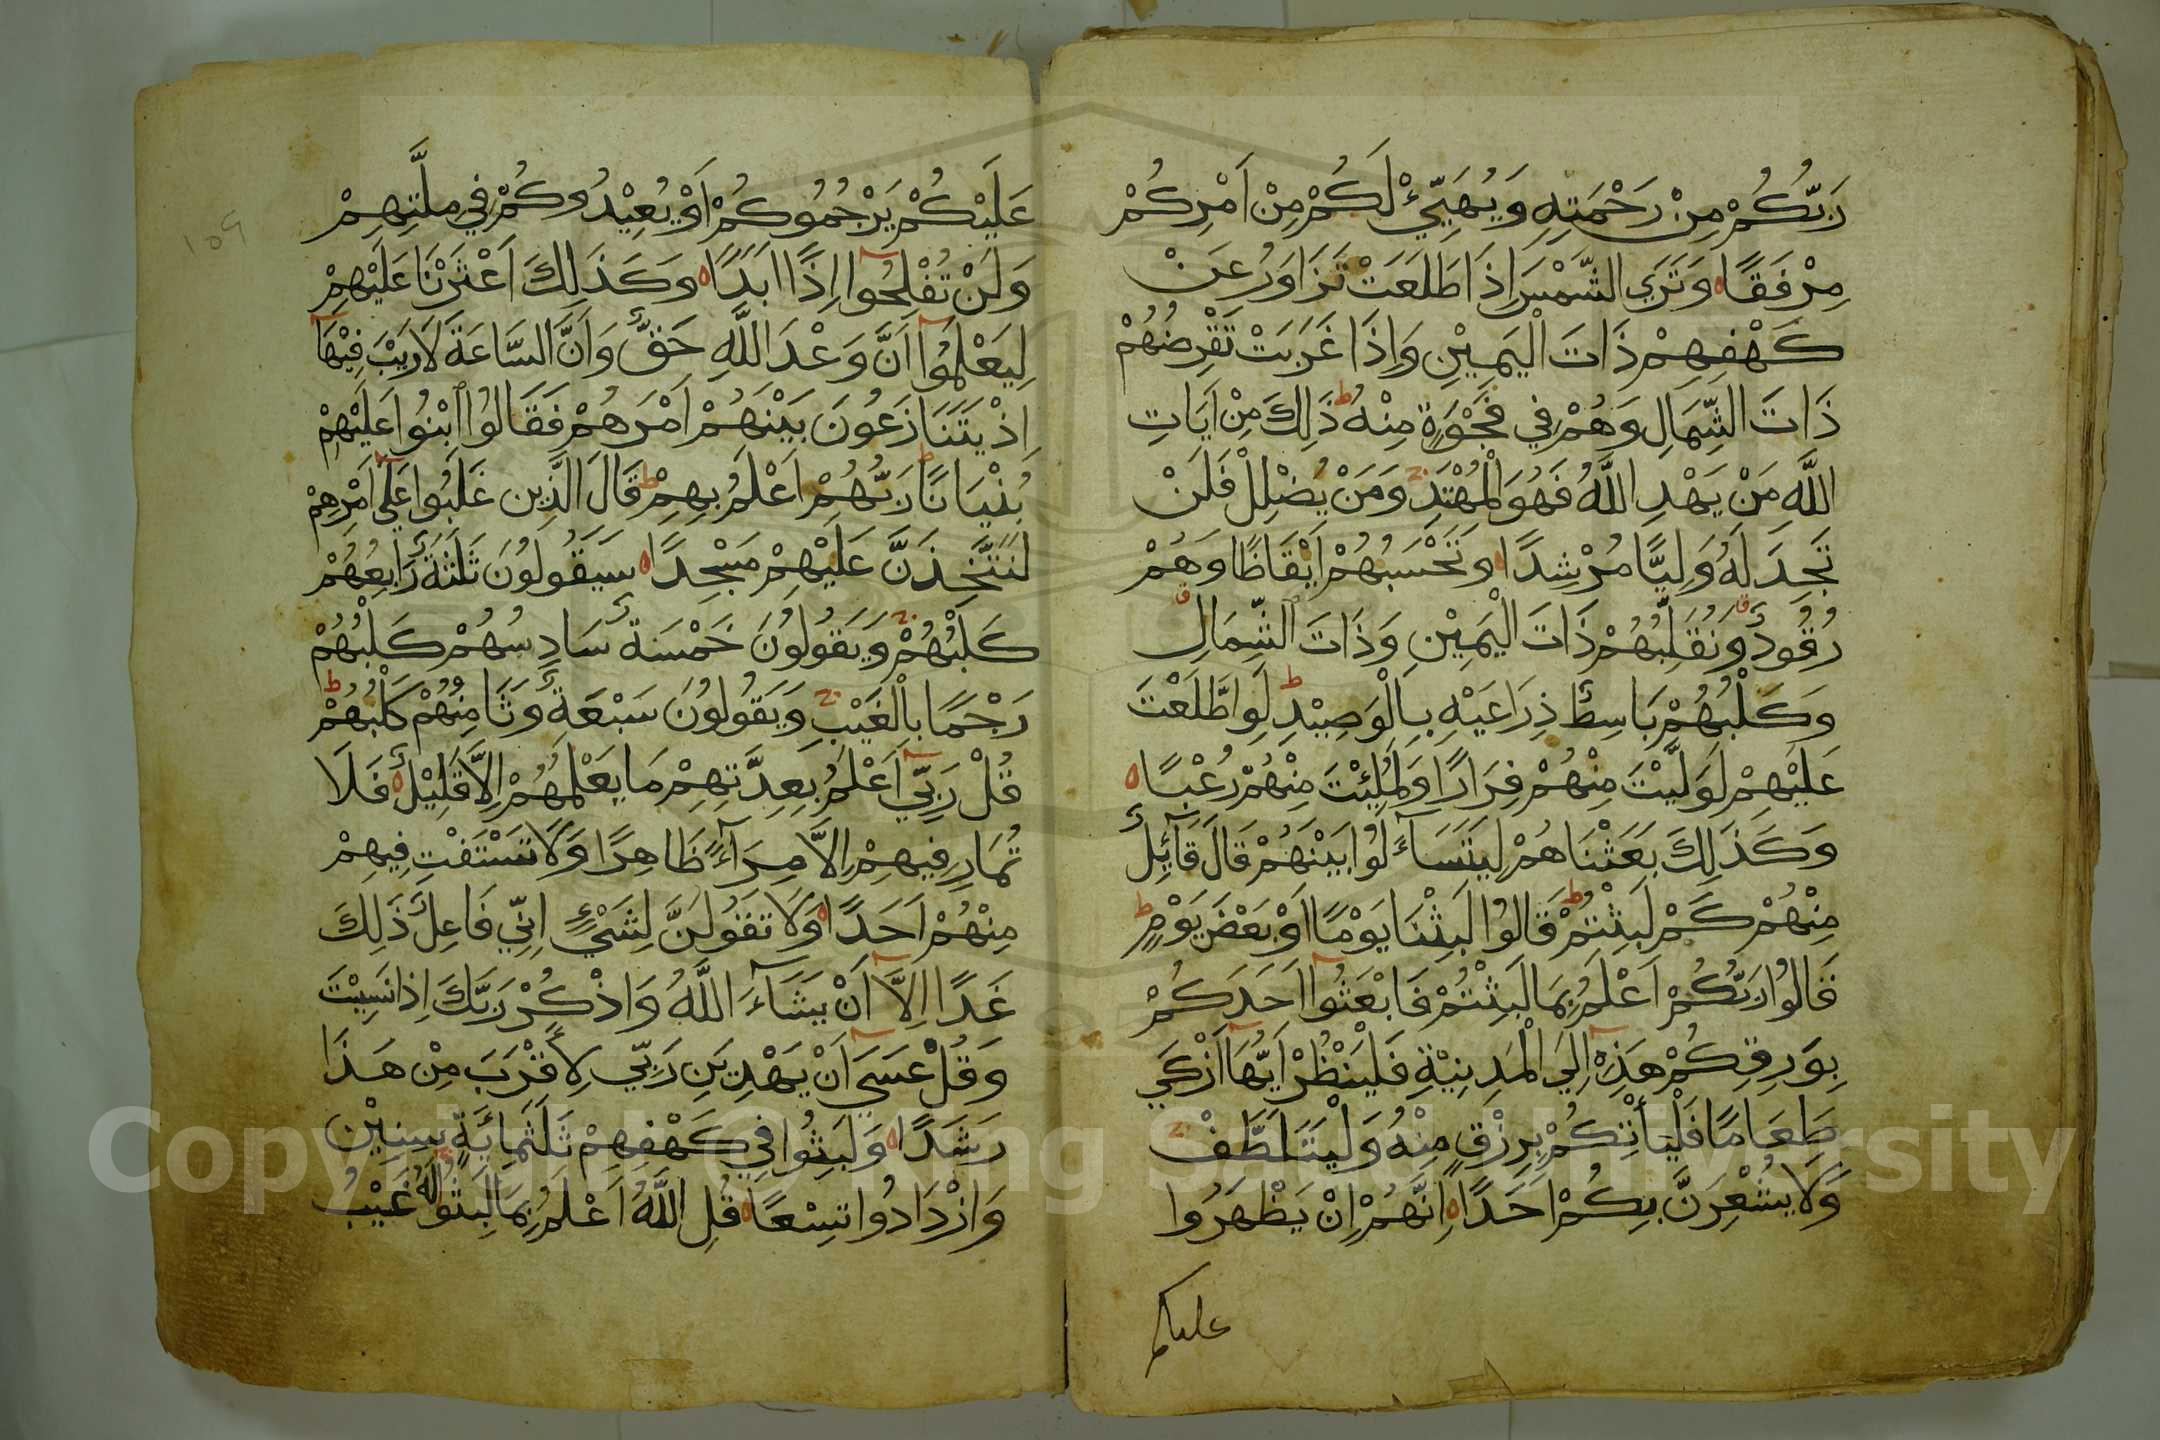 رَبُّكُمْ مِنْ رَحْمَتِهِ وَيُهَيِّئْ لَكُمْ مِنْ اَمْرِكُمْ
مِرْفَقًا ه وَتَرَي الشَّمْسَ اِذَا طَلَعَتْ تَزَاوَرُ عَنْ
كَهْفِهِمْ ذَاتَ الْيَمِيْنِ وَاِذَا غَرَبَتْ تَقْرِضُهُمْ
ذَاتَ الشِّمَالِ وَهُمْ فِي فَجْوَةٍ مِنْهُ ط ذَلِكَ مِنْ اَيَاتِ
اللَّهِ مَنْ يَهْدِ اللَّهُ فَهُوَ الْمُهْتَدِ ج وَمَنْ يُضْلِلْ فَلَنْ
تَجِدَ لَهُ وَلِيًّا مُرْشِدًا ه وَتَحْسَبُهُمْ اَيْقَاظًا وَهُمْ
رُقُودٌ ق وَنُقَلِّبُهُمْ ذَاتَ الْيَمِيْنِ وَذَاتَ الشِّمَالِ ق
وَكَلْبُهُمْ بَاسِطٌ ذِرَاعَيْهِ بِالْوَصِيْدِ ط لَوِ اطَّلَعْتَ
عَلَيْهِمْ لَوَلَّيْتَ مِنْهُمْ فِرَارًا وَلَمُلِئْتَ مِنْهُمْ رُعْبًا ه
وَكَذَلِكَ بَعَثْنَاهُمْ لِيَتَسَآءَلُوا بَيْنَهُمْ قَالَ قَآئِلٌ
مِنْهُمْ كَمْ لَبِثْتُمْ ط قَالُوا لَبِثْنَا يَوْمًا اَوْ بَعْضَ يَوْمٍ ط
قَالُوا رَبُّكُمْ اَعْلَمُ بِمَا لَبِثْتُمْ فَابْعَثُوآ اَحَدَكُمْ
بِوَرِقِكُمْ هَذِهِ اِلَي الْمَدِيْنَةِ فَلْيَنْظُرْ اَيُّهَا اَزْكَي
طَعَامًا فَلْيَأْتِكُمْ بِرِزْقٍ مِنْهُ وَلْيَتَلَطَّفْ ج
وَلَا يُشْعِرَنَّ بِكُمْ اَحَدًا ه اِنَّهُمْ اِنْ يَظْهَرُوا
عليكم
١٥٩
عَلَيْكُمْ يَرْجُمُوكُمْ اَوْ يُعِيْدُوكُمْ فِي مِلَّتِهِمْ
وَلَنْ تُفْلِحُوآ اِذًا اَبَدًا ه وَكَذَلِكَ اَعْثَرْنَا عَلَيْهِمْ
لِيَعْلَمُوآ اَنَّ وَعْدَ اللَّهِ حَقٌّ وَاَنَّ السَّاعَةَ لَا رَيْبَ فِيْهَآ
اِذْ يَتَنَازَعُونَ بَيْنَهُمْ اَمْرَهُمْ فَقَالُوا ابْنُوا عَلَيْهِمْ
بُنْيَانًا ط رَبُّهُمْ اَعْلَمُ بِهِمْ ط قَالَ الَّذِينَ غَلَبُوا عَلَي اَمْرِهِمْ
لَنَتَّخِذَنَّ عَلَيْهِمْ مَسْجِدًا ه سَيَقُولُونَ ثَلَثَةٌ رَابِعُهُمْ
كَلْبُهُمْ ج وَيَقُولُونَ خَمْسَةٌ سَادِسُهُمْ كَلْبُهُمْ
رَجْمًا بِالْغَيْبِ ج وَيَقُولُونَ سَبْعَةٌ وَثَامِنُهُمْ كَلْبُهُمْ ط
قُلْ رَبِّي اَعْلَمُ بِعِدَّتِهِمْ مَا يَعْلَمُهُمْ اِلَّا قَلِيْلٌ ه فَلَا
تُمَارِ فِيهِمْ اِلَّا مِرَآءً ظَاهِرًا وَلَا تَسْتَفْتِ فِيهِمْ
مِنْهُمْ اَحَدًا ه وَلَا تَقُولَنَّ لِشَيْءٍ اِنِّي فَاعِلٌ ذَلِكَ
غَدًا اِلَّآ اَنْ يَشَآءَ اللَّهُ وَاذْكُرْ رَبَّكَ اِذَا نَسِيْتَ
وَقُلْ عَسَي اَنْ يَهْدِيَنِ رَبِّي لِاَقْرَبَ مِنْ هَذَا
رَشَدًا ه وَلَبِثُوا فِي كَهْفِهِمْ ثَلَثَمِائَةٍ سِنِيْنَ
وَازْدَادُوا تِسْعًا ه قُلِ اللَّهُ اَعْلَمُ بِمَا لَبِثُوا ج لَهُ غَيْبُ
Copyright © King Saud University